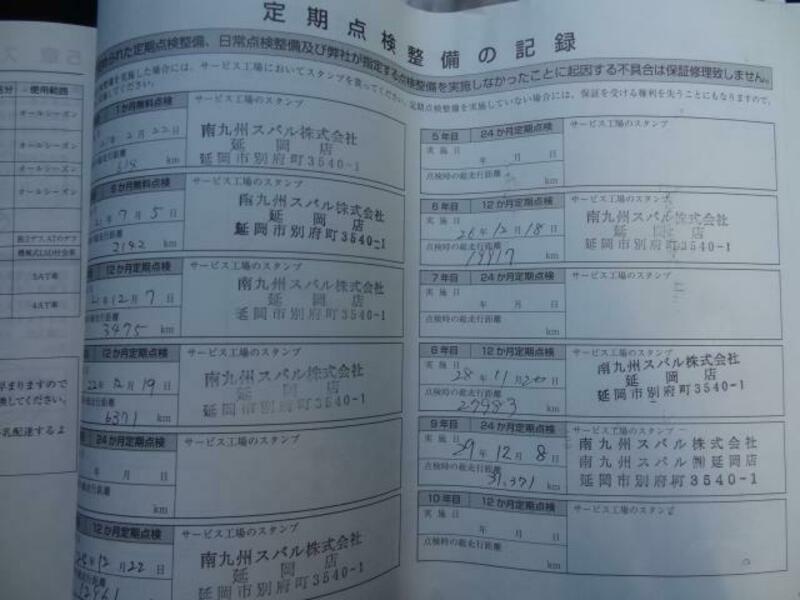 定期点検整備の記録
られた定期点検整備、日常点検整備及び弊社が指定する点検整備を実施しなかったことに起因する不具合は保証修理致しません。
整備を実施した場合には、サービス工場においてスタンプを貰ってください。定期点検整備を実施していない場合には、保証を受ける権利を失うことにもなりますので、
してください。
1か月無料点検
サービス工場のスタンプ
21年2月22日
km
南九州スバル株式会社
延岡店
延岡市別府町3540-1
6か月無料点検
サービス工場のスタンプ
21年7月5日
2142 km
南九州スバル株式会社
延岡店
延岡市別府町3540-1
12か月定期点検
サービス工場のスタンプ
21年12月7日
3475 km
南九州スバル株式会社
延岡店
延岡市別府町3540-1
12か月定期点検
サービス工場のスタンプ
22年12月19日
6371 km
南九州スバル株式会社
延岡店
延岡市別府町3540-1
24か月定期点検
サービス工場のスタンプ
年 月 日
走行距離
km
12か月定期点検
サービス工場のスタンプ
12月22日
12461
南九州スバル株式会社
延岡店
延岡市別府町3540-1
5年目 24か月定期点検
サービス工場のスタンプ
実施日
年 月 日
点検時の総走行距離
km
6年目 12か月定期点検
サービス工場のスタンプ
実施日
26年12月18日
点検時の総走行距離
19917 km
南九州スバル株式会社
延岡店
延岡市別府町3540-1
7年目 24か月定期点検
サービス工場のスタンプ
実施日
年 月 日
点検時の総走行距離
km
8年目 12か月定期点検
サービス工場のスタンプ
実施日
28年11月20日
点検時の総走行距離
27983 km
南九州スバル株式会社
延岡店
延岡市別府町3540-1
9年目 24か月定期点検
サービス工場のスタンプ
実施日
29年12月8日
点検時の総走行距離
31,371 km
南九州スバル株式会社
南九州スバル㈱延岡店
延岡市別府町3540-1
10年目 12か月定期点検
サービス工場のスタンプ
実施日
年 月 日
点検時の総走行距離
km
区分 使用範囲
オールシーズン
オールシーズン
オールシーズン
オールシーズン
機械式LSD付会車
5AT車
4AT車
早まりますので
換してください。
に配達するよ